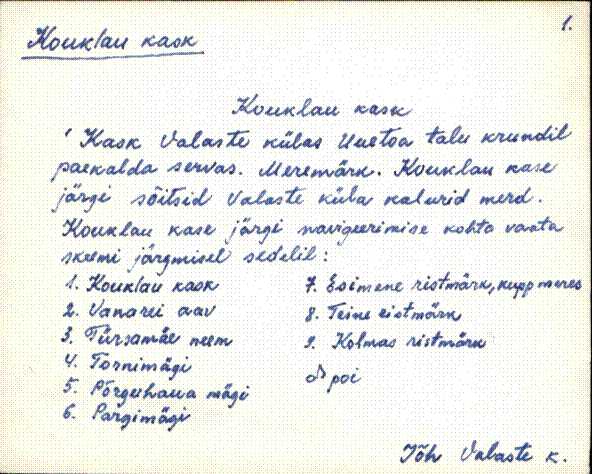 1.
Kouklau kask
Kouklau kask
Kask Valaste külas Uuetoa talu krundil
paekalda servas. Meremärk. Kouklau kase
järgi sõitsid Valaste küla kalurid merd.
Kouklau kase järgi navigeerimise kohta vaata
skeemi järgmisel sedelil:
1. Kouklau kask
2. Vanarei aav
3. Türsamäe neem
4. Tornimägi
5. Põrguhaua mägi
6. Pargimägi
7. Esimene ristmärk, kupp meres
8. Teine ristmärk
9. Kolmas ristmärk
poi
Jõh Valaste k.